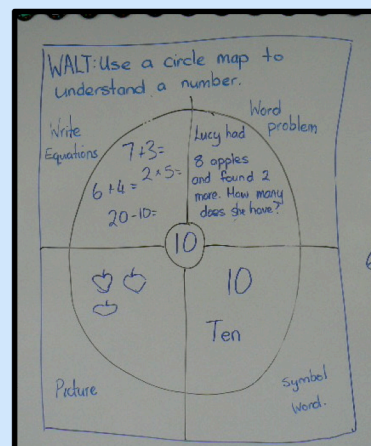 WALT: Use a circle map to
understand a number.
Write
Equations
7+3=
2×5=
6+4=
20-10=
Word
problem
Lucy had
8 apples
and found 2
more. How many
does she have?
10
10
Ten
Picture
Symbol
word.